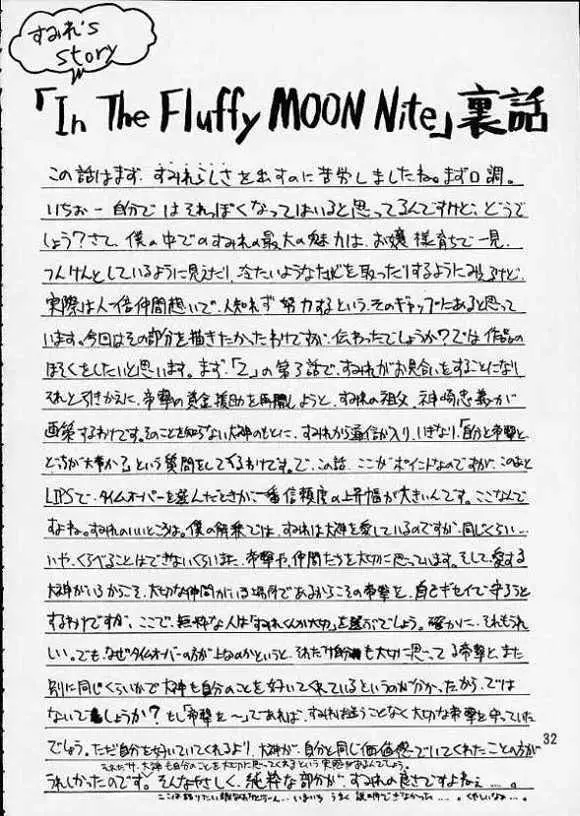 すみれ's
story
「In The Fluffy MOON Nite」裏話
この話はまず、すみれらしさを出すのに苦労しましたね。まず口調。
いちおー自分で はそれっぽくなってはいると思ってるんですけど、どうで
しょう?さて、僕の中でのすみれの最大の魅力は、お嬢様育ちで一見、
つんけんとしているように見えたり、冷たいような態度を取ったりするようにみえるけど、
実際は人一倍仲間想いで、人知れず努力するという、そのギャップにあると思って
います。今回はその部分を描きたかったわけですが、伝わったでしょうか?では作品の
ほそくをしたいと思います。まず「2」の第3話で、すみれがお見合いをすることになり
それと引きかえに、帝撃の資金援助を再開しようと、すみれの祖父、神崎忠義が
画策するわけです。そのことを知らない大神のもとに、すみれから通信が入り、いきなり、「自分と帝撃と
どっちが大事か?」という質問をしてくるわけです。で、この話、ここがポイントなのですが、このあと
LIPSで、タイムオーバーを選んだときが一番信頼度の上昇幅が大きいんです。ここなんで
すよね。すみれのいいところは。僕の解釈では、すみれは大神を愛しているのですが、同じくらい…
いや、くらべることはできないくらいに、帝撃や、仲間たちを大切に思っています。そして、愛する
大神がいるからこそ、大切な仲間がいる場所であるからこその帝撃を、自己ギセイで守ろうと
するわけですが、ここで、無粋な人は「すみれくんが大切」を選ぶでしょう。確かに、それもうれ
しい。でも、なぜタイムオーバーの方が上なのかというと、それだけ自分も大切に思ってる帝撃と、また
別に同じくらいかで大神も自分のことを好いてくれているというのが分かったから、では
ないでしょうか?もし「帝撃を～」であれば、すみれは迷うことなく大切な帝撃を守っていた
でしょう。ただ自分を好いていてくれるより、大神が、自分と同じ価値感でいてくれたことの方が
それだけ、大神も自分のことを大切に思ってくれるという実感があるんでしょう。
うれしかったのです。そんなやさしく、純粋な部分が、すみれの良さですよねぇ……。
32